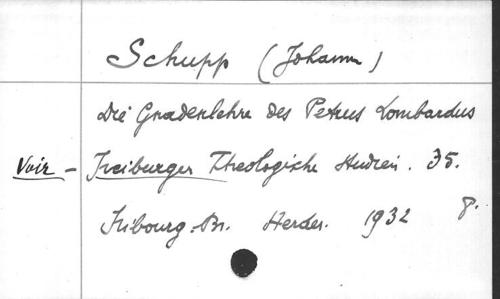 Schupp (Johann)
Die Gnadenlehre des Petrus Lombardus
Voir - Freiburger Theologische Studien. 35.
Fribourg-Br. Herder. 1932 8°.